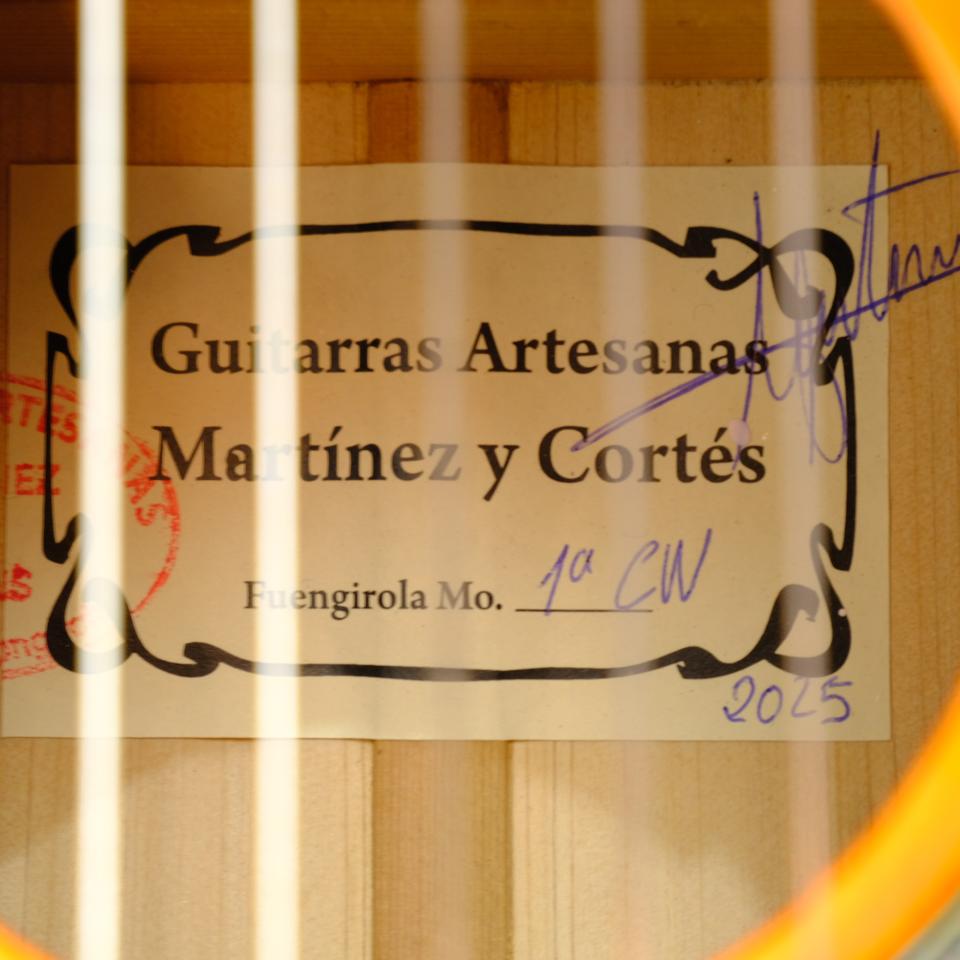 Guitarras Artesanas
Martínez y Cortés
Fuengirola Mo. 1ª CW
2025